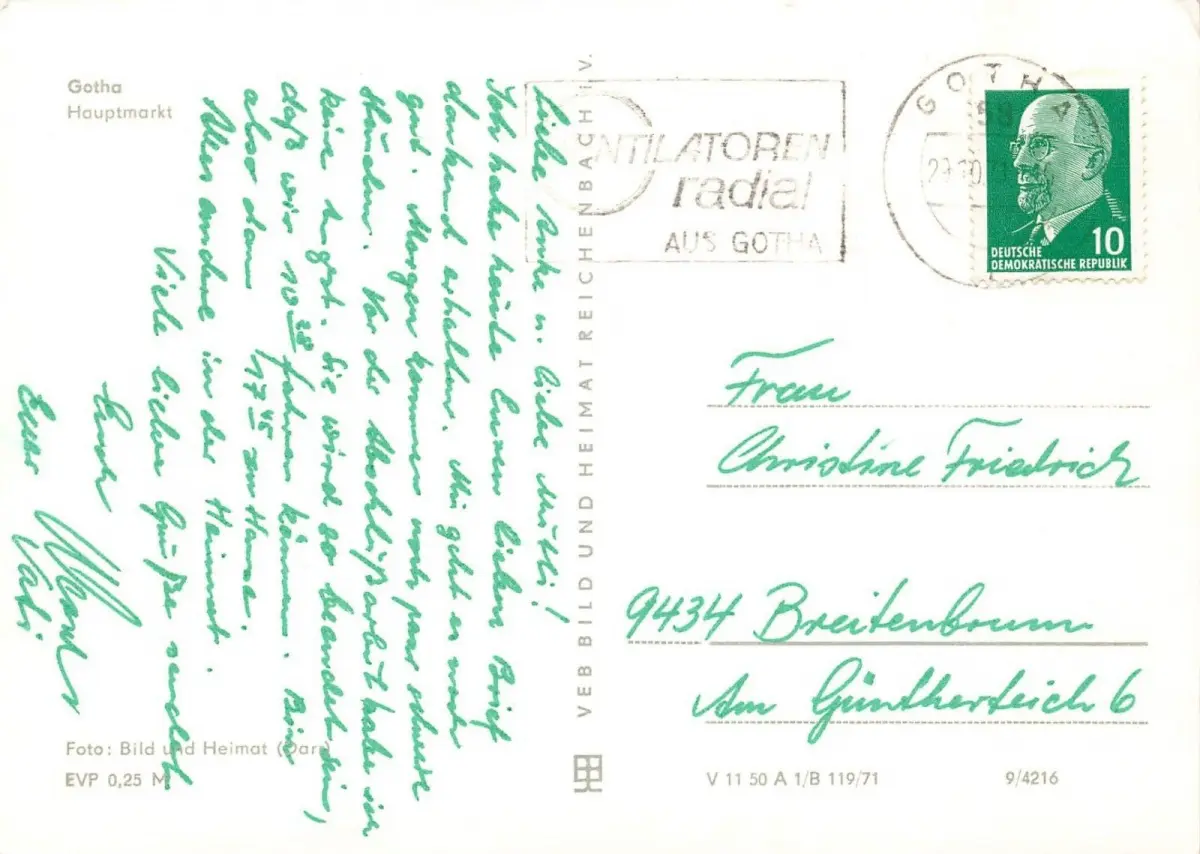 Gotha
Hauptmarkt
Liebe Anke u. liebe Mutti!
Ich habe heute Euren lieben Brief
dankend erhalten. Mir geht es noch
gut. Morgen kommen noch paar schwere
Stunden. Vor der Abschlußarbeit habe ich
keine Angst. Sie wird so beendet sein,
daß wir 10 28 fahren können. Bin
also dann 17 45 zu Hause.
Alles andere in der Heimat.
Viele liebe Grüße sendet
Euch
Euer Vati
VEB BILD UND HEIMAT REICHENBACH i. V.
NTILATOREN
radial
AUS GOTHA
GOTHA
58
DEUTSCHE
DEMOKRATISCHE REPUBLIK
10
Frau
Christine Friedrich
9434 Breitenbrunn
Am Güntherteich 6
Foto: Bild und Heimat (Darr)
EVP 0,25 M
V 11 50 A 1/B 119/71
9/4216